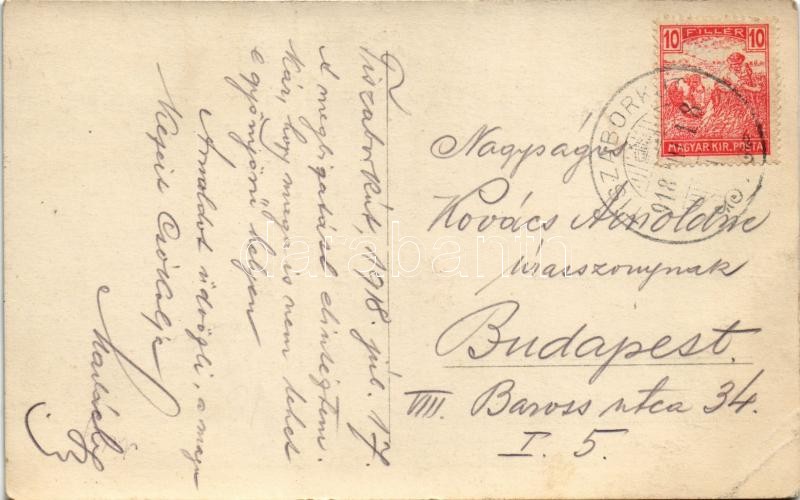 Tiszaborkút, 1918. júl. 17.
A megbizatást elintéztem.
Kár, hogy maga is nem lehet
e gyönyörű helyen
Arnoldot üdvözli, a maga
Kezeit Csókolja
10 FILLÉR 10
MAGYAR KIR. POSTA
TISZABORKÚT
918
18
Nagyságos
Kovács Arnoldné
úrasszonynak
Budapest.
VIII. Baross utca 34.
I. 5.
darabanth